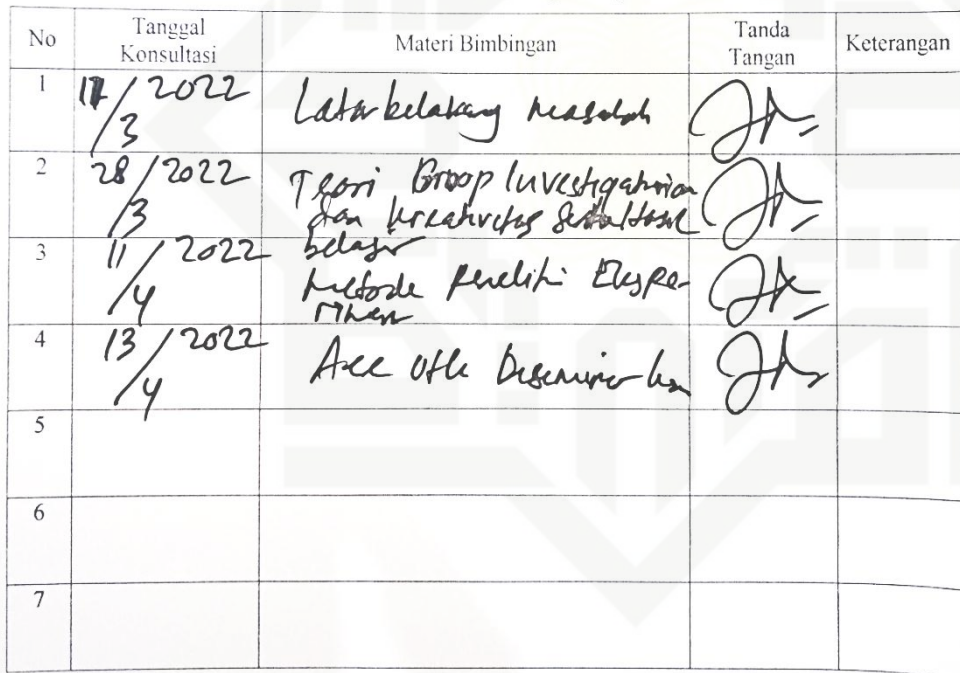 No Tanggal Konsultasi Materi Bimbingan Tanda Tangan Keterangan
1 17/3 2022 Latar belakang masalah
2 28/3 2022 Teori Group Investigation
dan kreativitas serta hasil
belajar
3 11/4 2022 Metode Peneliti Ekspe-
rimen
4 13/4 2022 Acc utk Diseminarkan
5
6
7